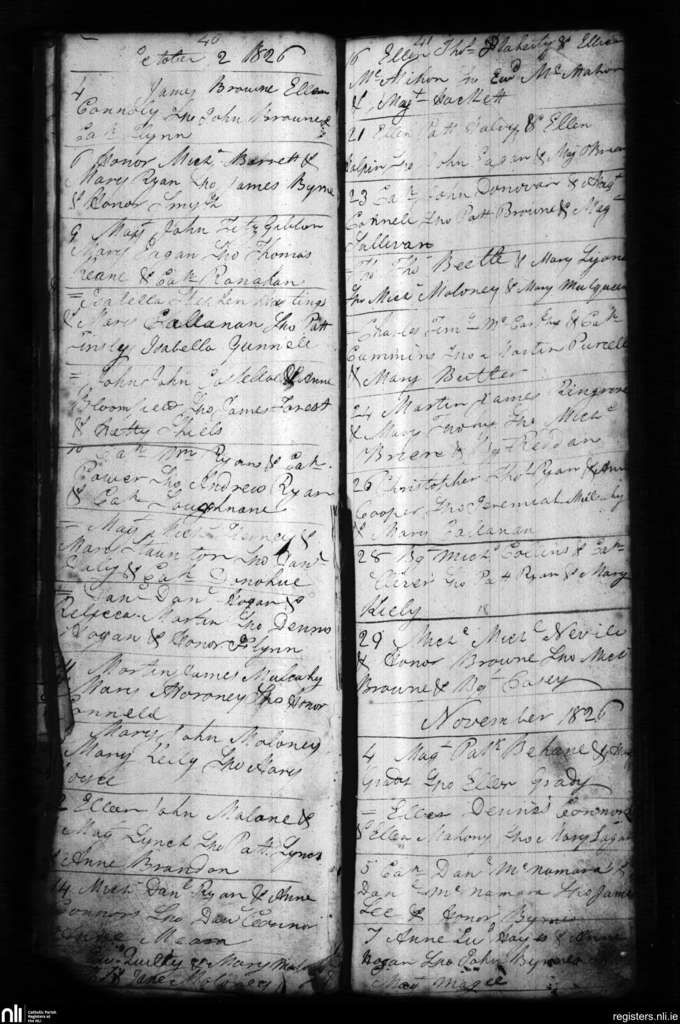 40
October 2 1826
4 James Browne Ellen
Connoly Spo John Browne &
Cath Flynn
6 Honor Mich Barrett &
Mary Ryan Spo James Byrne
& Honor Smyth
9 Mary John Fitz Gibbon
Mary Eagan Spo Thomas
Keane & Cath Ranahan
= Isabella Stephen Hastings
& Mary Callanan Spo Patt
Tinsley Isabella Gunnell
= John John Costelloe & Anne
Bloomfield Spo James Forest
& Kitty Shiels
10 Cath Wm Ryan & Cath
Power Spo Andrew Ryan
& Cath Loughnane
= Mary Mich &
Mary Staunton Spo Danl
Daly & Cath Donohue
= Danl Danl Hogan &
Rebecca Martin Spo Dennis
Hogan & Honor Flynn
11 Martin James Mulcahy
Mary Moroney Spo Honor
Connell
Mary John Moloney
Mary Kiely Spo Mary
Joyce
12 Ellen John Malone &
Mag Lynch Spo Patt Lynch
& Anne Brandon
14 Mich Danl Ryan & Anne
Connors Spo Danl Connor
Meara
Quilty & Mary
& Jane Maloney
41
16 Ellen Thos Flaherty & Ellen
McMahon Spo Edwd McMahon
& Magt Hackett
21 Ellen Patt Halvey & Ellen
Halpin Spo John Eagan & Mgt OBrien
23 Cath John Donovan & Magt
Connell Spo Patt Browne & Mag
Sullivan
= Thos Thos Beetle & Mary Lyons
Spo Michl Moloney & Mary Mulqueen
Charles Timy McCarthy & Cath
Cummins Spo Martin Purcell
& Mary Butler
24 Martin James Ringrove
& Mary Spo Michl
& Bgt Reddan
26 Christopher Thos Ryan & Ann
Cooper Spo Jeremiah Mulcahy
& Mary Callanan
28 Bgt Michl Collins & Cath
Spo Patt Ryan & Mary
Kiely
29 Michl Michl Nevill
& Honor Browne Spo Michl
Browne & Bgt Casey
November 1826
4 Magt Patk Behane & Anne
Grady Spo Ellen Grady
= Ellen Dennis Connors
& Ellen Mahony Spo Mary Eagan
5 Cath Danl McNamara &
Danl McNamara Spo James
Lee & Honor Byrnes
7 Anne Edwd Hayes & Anne
Hogan Spo John Byrnes
Magt Magee
nli
Catholic Parish
Registers at
the NLI
registers.nli.ie